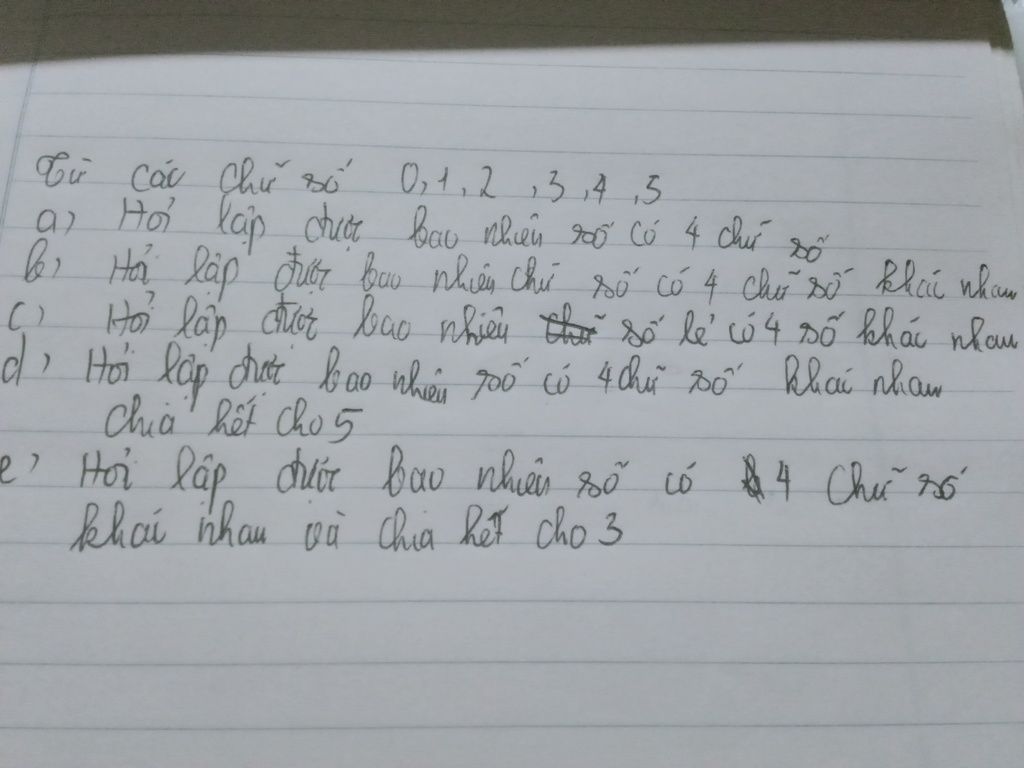 Từ các chữ số 0, 1, 2, 3, 4, 5
a) Hỏi lập được bao nhiêu số có 4 chữ số
b) Hỏi lập được bao nhiêu chữ số có 4 chữ số khác nhau
c) Hỏi lập được bao nhiêu số lẻ có 4 số khác nhau
d) Hỏi lập được bao nhiêu số có 4 chữ số khác nhau
chia hết cho 5
e) Hỏi lập được bao nhiêu số có 4 chữ số
khác nhau và chia hết cho 3